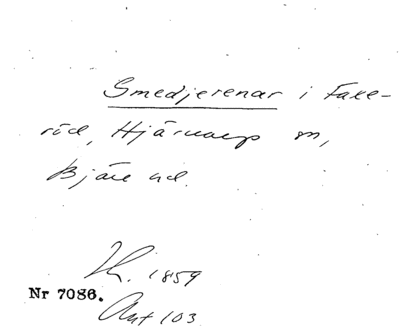 Smedjerenar i Faxe-
röd, Hjärnarps sn,
Bjäre hd.
Th. 1859
Nr 7086.
Ant 103